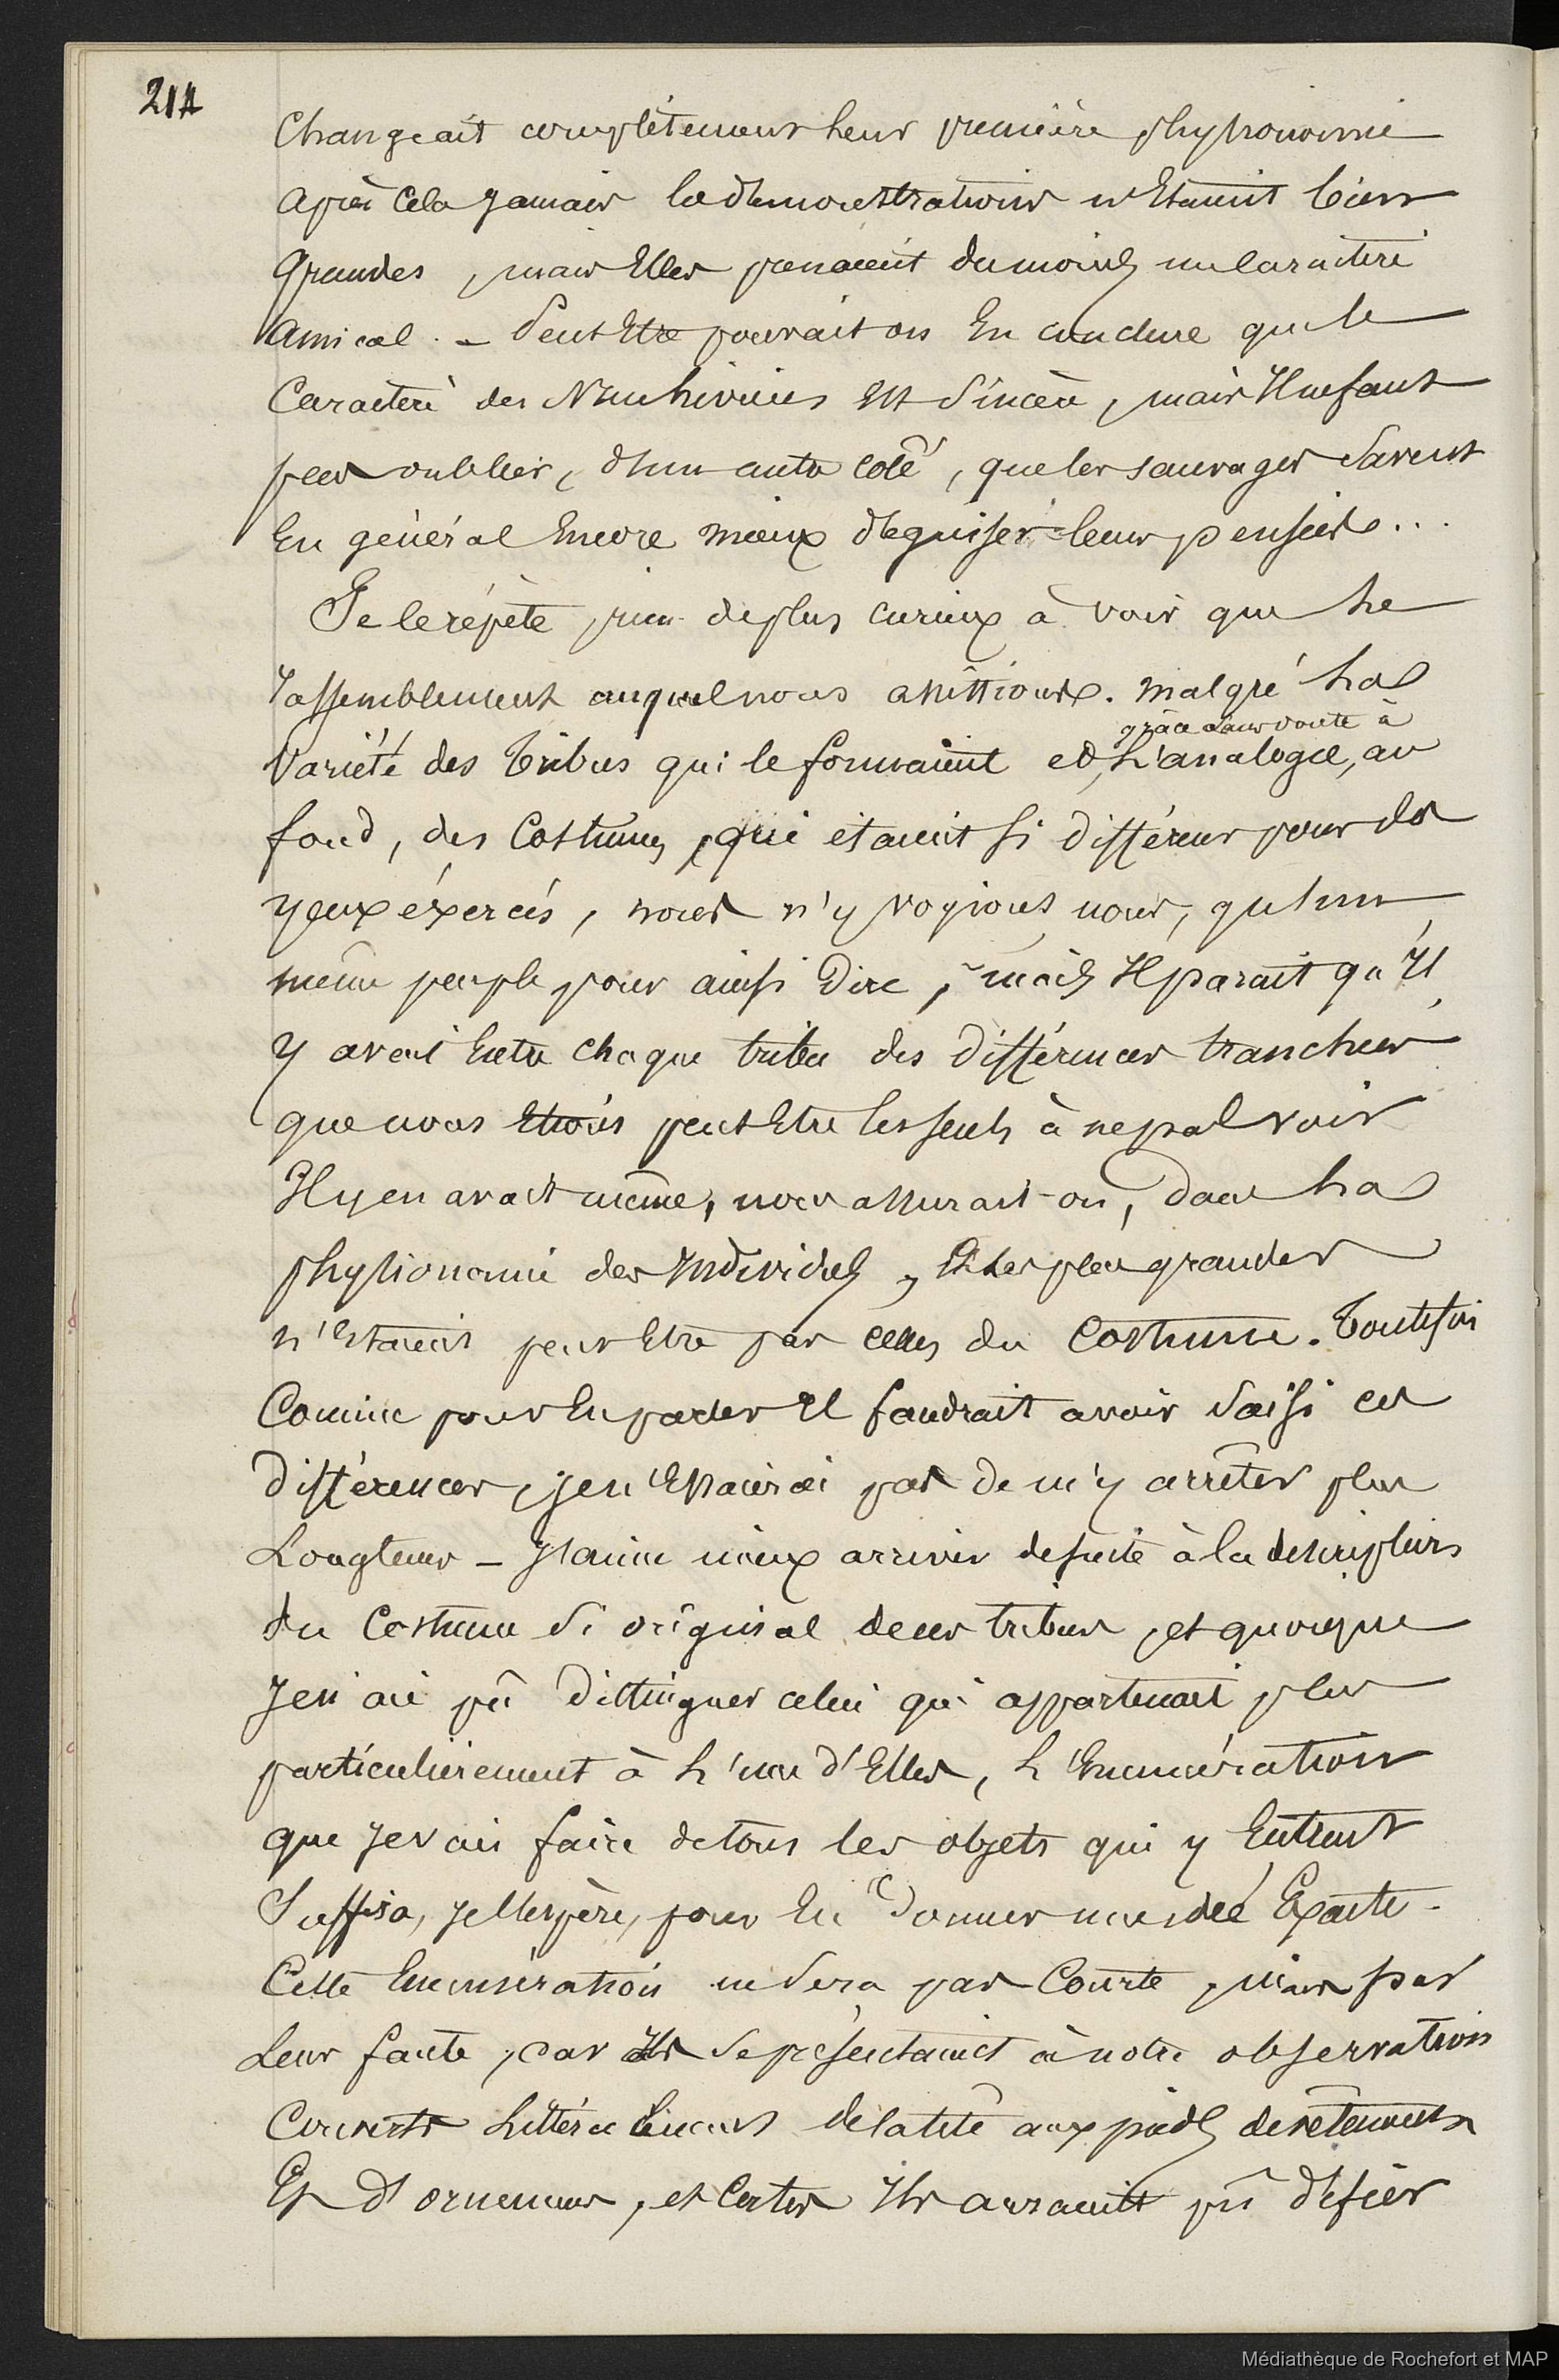 214
Changeait complètement leur première physionomie
Après cela jamais les démonstrations n'étaient bien
Grandes, mais Elles prenaient du moins un caractère
Amical. - Peut Etre pourrait on En conclure que le
Caractère des Nouhiviens Est Sincère, mais Il ne faut
pas oublier, d'un autre coté, que les sauvages Savent
En général Encore mieux déguiser leurs pensées...
Je le répète, rien de plus curieux à voir que Le
rassemblement auquel nous assistions. malgré La
grâce sans doute à
Variété des Tribus qui le formaient et L'analogie, au
fond, des Costumes, qui étaient si différens pour des
yeux éxercés, nous n'y voyions nous, qu'un
même peuple pour ainsi Dire, mais Il parait qu'Il
y avait Entre chaque tribu des différences tranchées
que nous Etions peut Etre les seuls à ne pas voir
Il y en avait même, nous assurait-on, dans La
physionomie des Individus, Et les plus grandes
n'Etaient peut Etre pas celles du Costume. Toutefois
Comme pour En parler Il faudrait avoir Saisi ces
différences, je n'Essaierai pas de m'y arrêter plus
Longtems - J'aime mieux arriver de suite à la description
du Costume Si original de ces tribus, et quoique
Je n'aie pû distinguer celui qui appartenait plus
particulièrement à L'une d'Elles, L'Enumération
que Je vais faire de tous les objets qui y Entrent
Suffira, Je l'espère, pour En donner une idée Exacte.
Cette Enumération ne Sera pas Courte, mais par
Leur faute, car Ils Se présentaient à notre observation
Couverts Littéralement de la tête aux pieds de vêtements
Et d'ornemens, et Certes Ils auraient pû défier
Médiathèque de Rochefort et MAP